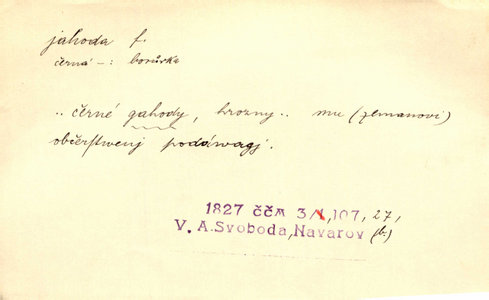 jahoda f.
černá –: borůvka
„ černé gahody, hrozny .. mu (zemanovi)
občerstwenj podáwagj.
1827 ČČM 3/1,107, 27,
V. A. Svoboda, Navarov (b.)